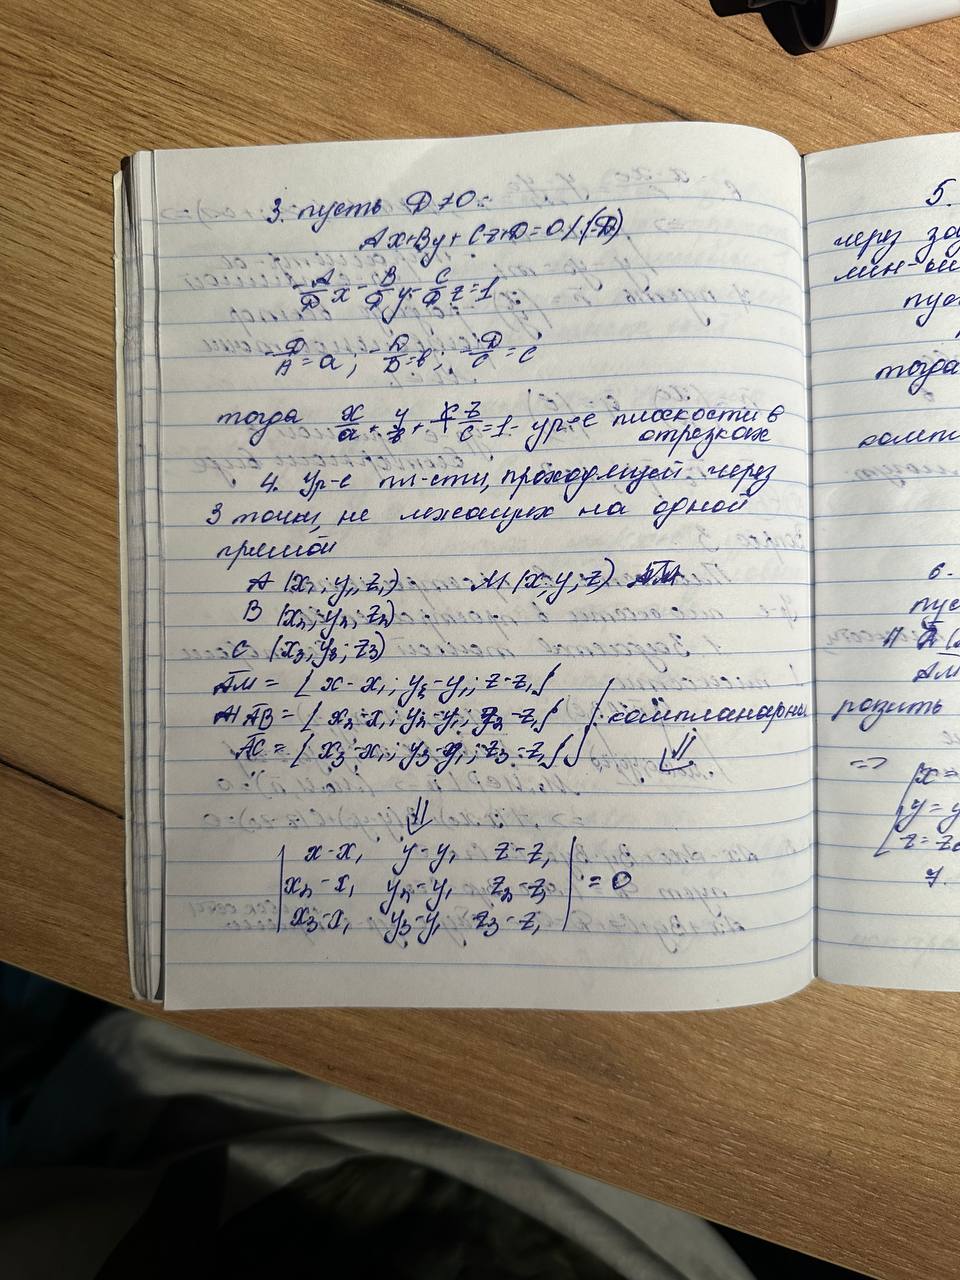 3. пусть D ≠ 0:
Ax+By+Cz+D=0 /:(-D)
-A/D x - B/D y - C/D z = 1
-D/A = a; -D/B = b; -D/C = c
тогда x/a + y/b + z/c = 1 - ур-е плоскости в
отрезках
4. Ур-е пл-сти, проходящей через
3 точки, не лежащих на одной
прямой
A (x₁; y₁; z₁) M (x; y; z)
B (x₂; y₂; z₂)
C (x₃; y₃; z₃)
AM = { x-x₁; y-y₁; z-z₁ }
AB = { x₂-x₁; y₂-y₁; z₂-z₁ } компланарны
AC = { x₃-x₁; y₃-y₁; z₃-z₁ }
⇓
⇓
| x-x₁ y-y₁ z-z₁ |
| x₂-x₁ y₂-y₁ z₂-z₁ | = 0
| x₃-x₁ y₃-y₁ z₃-z₁ |
5.
через
лин-
пус
тогда
компл
6.
пус
AM
разить
=>
x =
y = y
z = z₀
7.